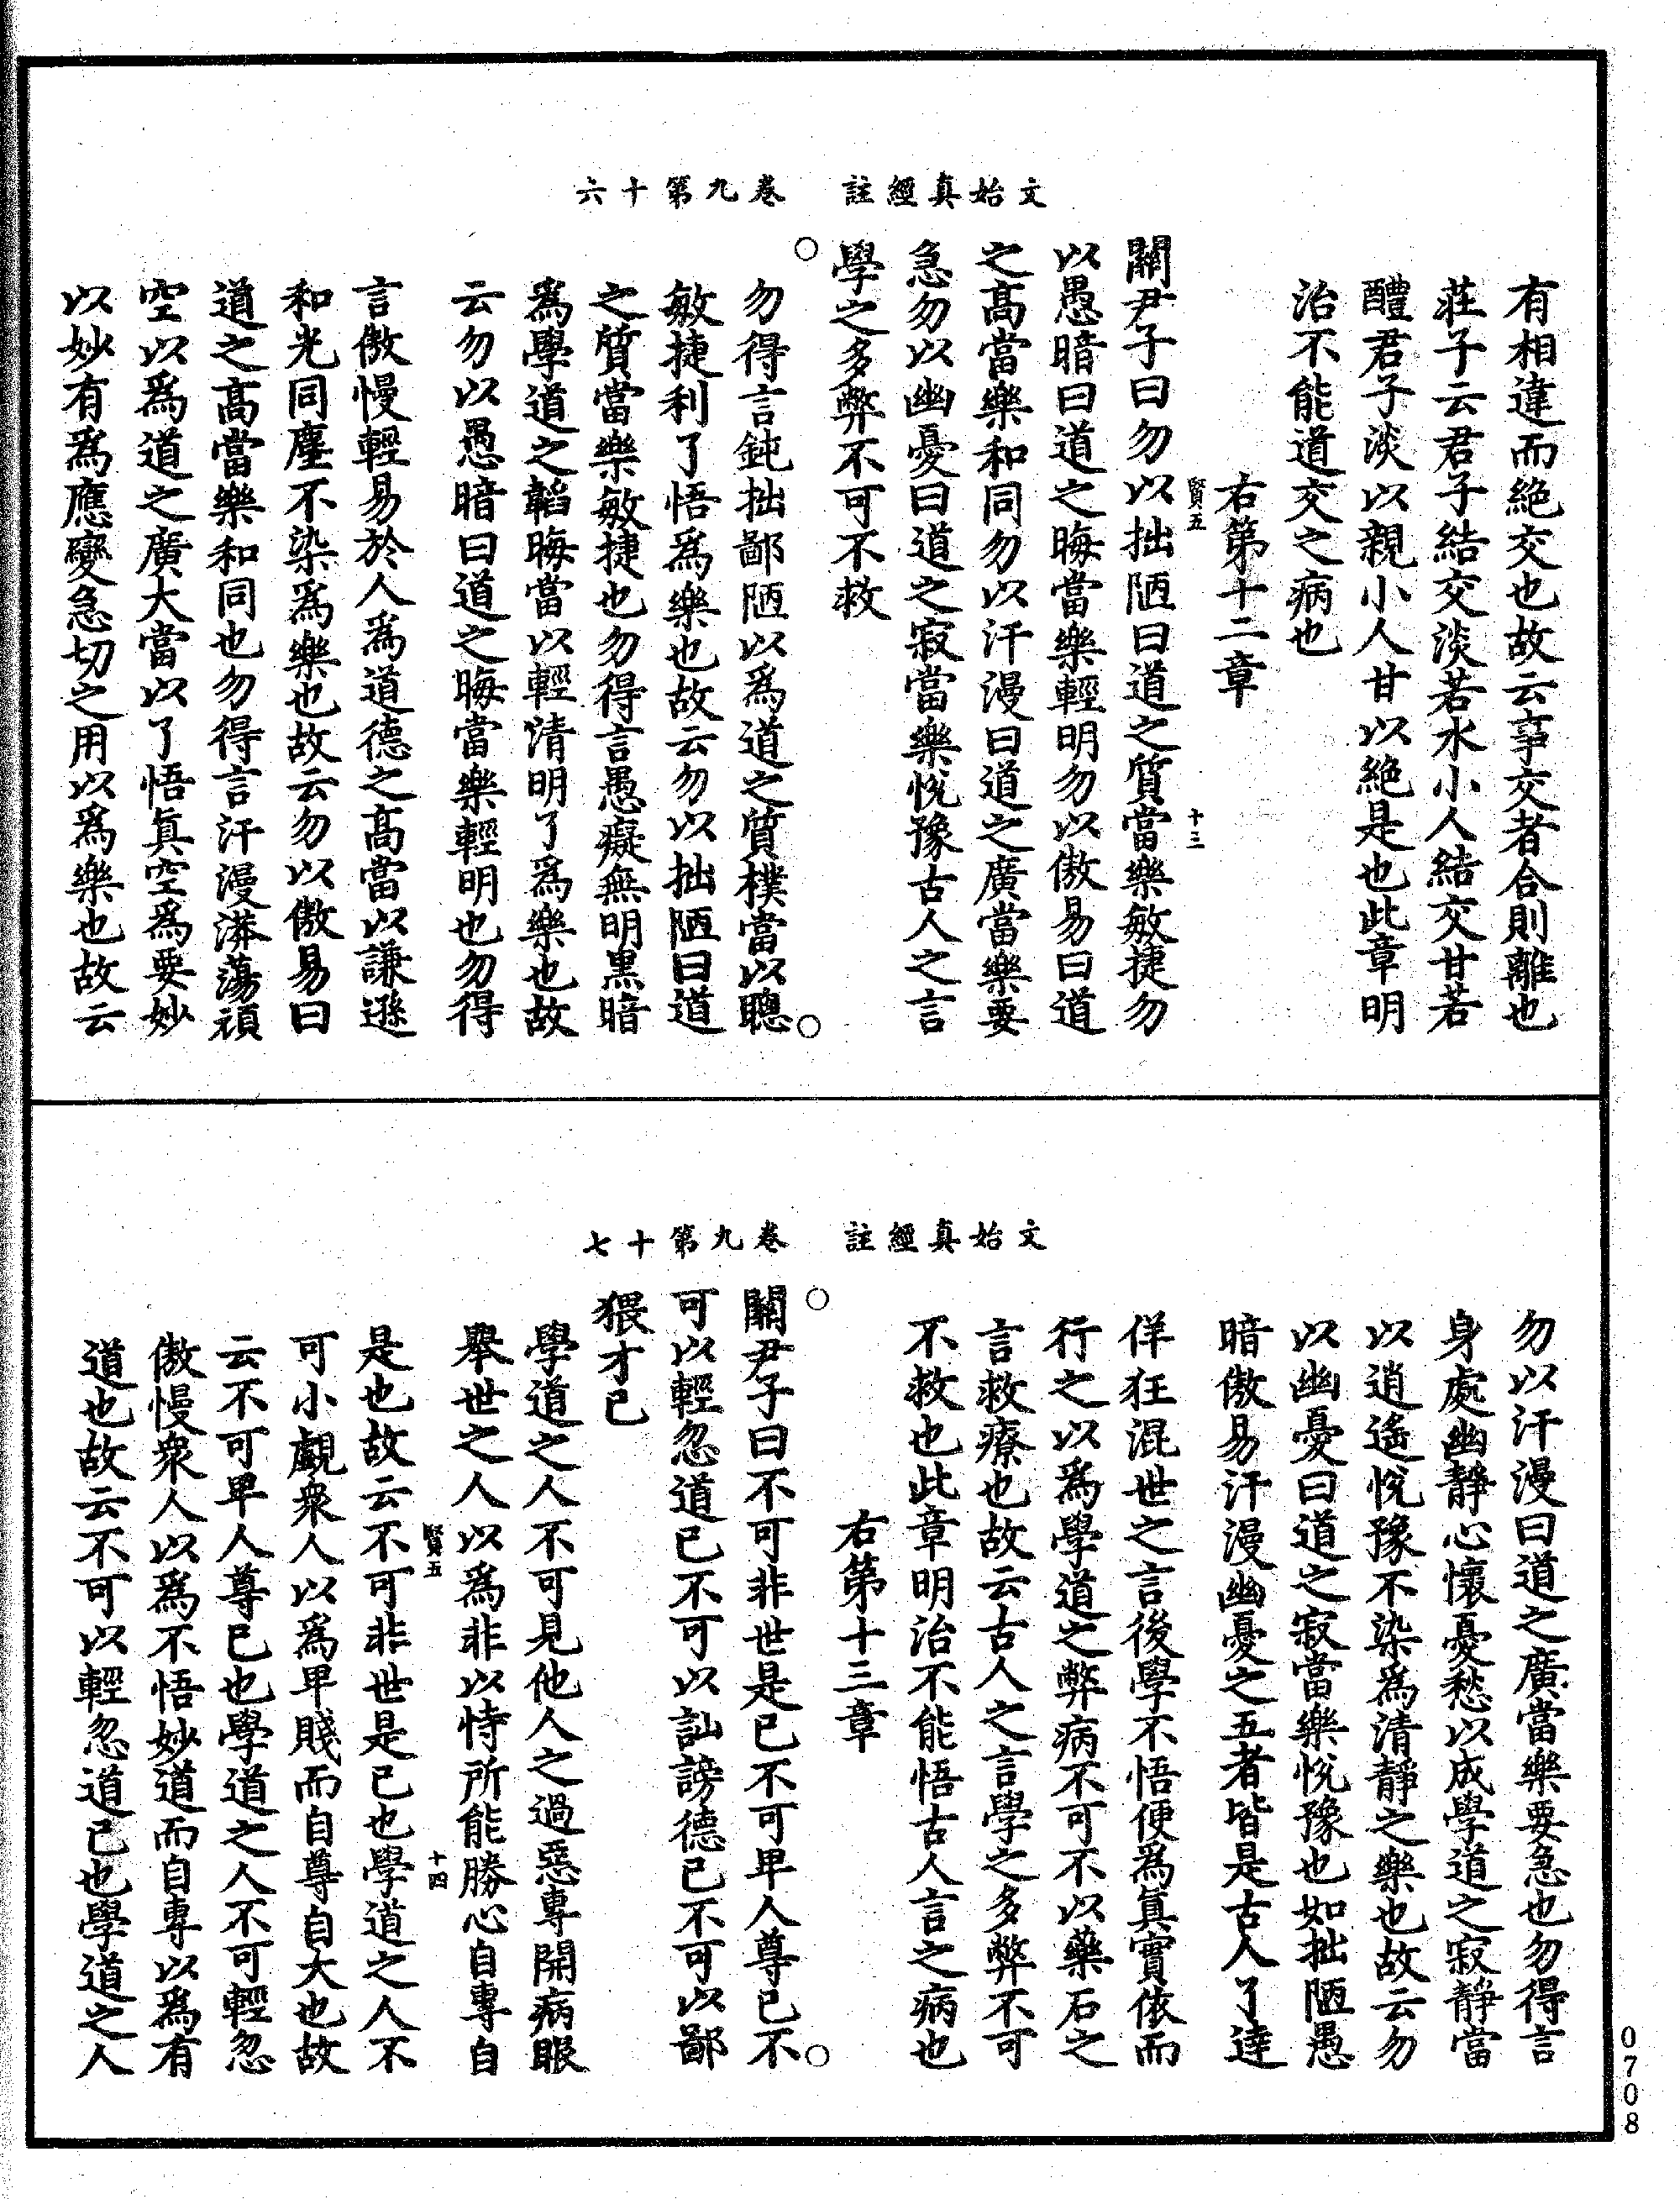 文始真經註　卷九第十六
有相違而絕交也故云事交者合則離也
莊子云君子結交淡若水小人結交甘若
醴君子淡以親小人甘以絕是也此章明
治不能道交之病也
右第十二章
賢五　十三
關尹子曰勿以拙陋曰道之質當樂敏捷勿
以愚暗曰道之晦當樂輕明勿以傲易曰道
之高當樂和同勿以汗漫曰道之廣當樂要
急勿以幽憂曰道之寂當樂悅豫古人之言
學之多弊不可不救
○勿得言鈍拙鄙陋以為道之質樸當以聰○
敏捷利了悟為樂也故云勿以拙陋曰道
之質當樂敏捷也勿得言愚癡無明黑暗
為學道之韜晦當以輕清明了為樂也故
云勿以愚暗曰道之晦當樂輕明也勿得
言傲慢輕易於人為道德之高當以謙遜
和光同塵不染為樂也故云勿以傲易曰
道之高當樂和同也勿得言汗漫漭蕩頑
空以為道之廣大當以了悟真空為要妙
以妙有為應變急切之用以為樂也故云
文始真經註　卷九第十七
勿以汗漫曰道之廣當樂要急也勿得言
身處幽靜心懷憂愁以成學道之寂靜當
以逍遙悅豫不染為清靜之樂也故云勿
以幽憂曰道之寂當樂悅豫也如拙陋愚
暗傲易汗漫幽憂之五者皆是古人了達
佯狂混世之言後學不悟便為真實依而
行之以為學道之弊病不可不以藥石之
言救療也故云古人之言學之多弊不可
不救也此章明治不能悟古人言之病也
右第十三章
○關尹子曰不可非世是己不可卑人尊己不○
可以輕忽道己不可以訕謗德己不可以鄙
猥才己
學道之人不可見他人之過惡專開病眼
舉世之人以為非以恃所能勝心自專自
賢五　十四
是也故云不可非世是己也學道之人不
可小覷衆人以為卑賤而自尊自大也故
云不可卑人尊己也學道之人不可輕忽
傲慢衆人以為不悟妙道而自專以為有
道也故云不可以輕忽道己也學道之人
0708